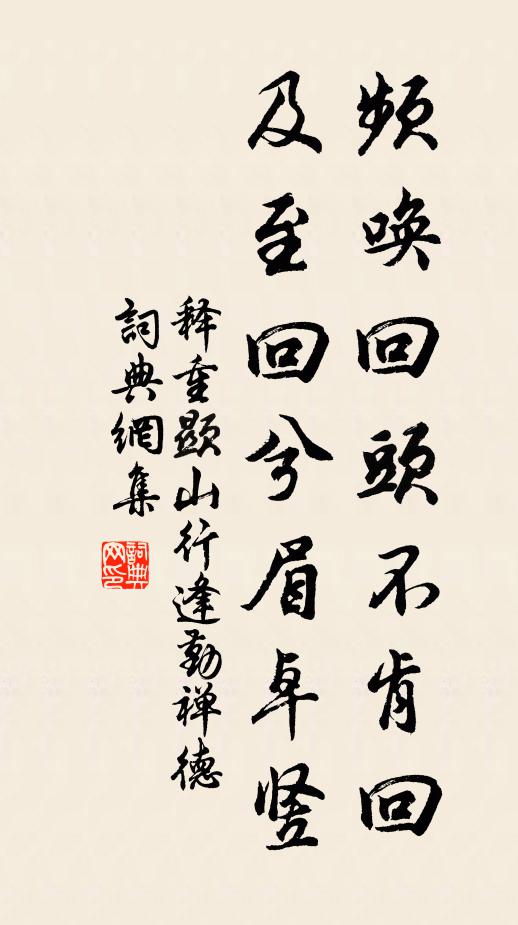 頻唤回頭不肯回
及至回兮眉卓竖
释重顯山行逢勤禅德
詞典網集
詞典网印